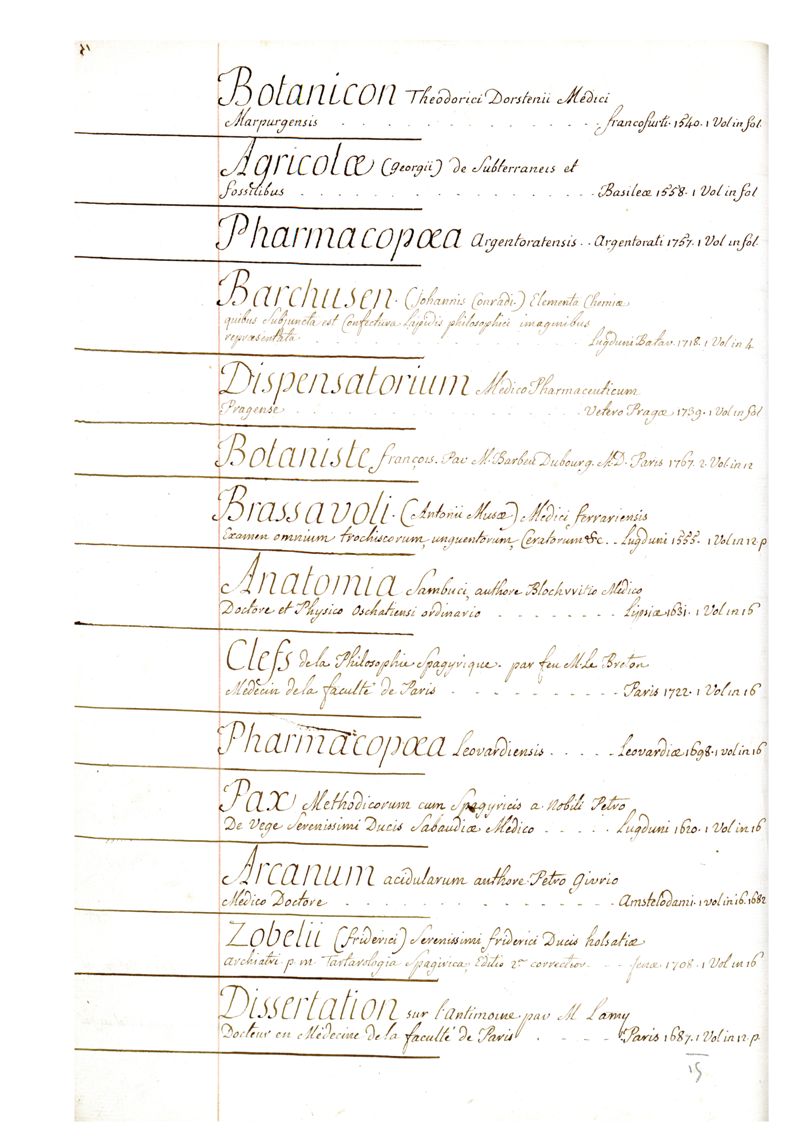 Botanicon Theodorici Dorstenii Médici
Marpurgensis . . . . . . . . . . . . . . francofurti. 1540. 1 Vol in fol.
Agricolæ (georgii) de Subterraneis et
fossilibus . . . . . . . . . . . . . . . . . . Basileæ 1558. 1 Vol in fol
Pharmacopœa Argentoratensis . . Argentorati 1757. 1 Vol in fol
Barchusen. (Johannis Conradi.) Elementa Chemiæ
quibus Subjuncta est Confectura Lapidis philosophici imaginibus
repræsentata . . . . . . . . . . . . . . . . Lugduni Batav. 1718. 1 Vol in 4
Dispensatorium Médico Pharmaceuticum
Pragense . . . . . . . . . . . . . . . . . . Vetero Pragæ 1739. 1 Vol in fol
Botaniste françois. Par M. Barbeu Dubourg. M.D. Paris 1767. 2. Vol in 12
Brassavoli. (Antonii Musæ) Médici ferrariensis
Examen omnium trochiscorum, unguentorum, Ceratorum &c. . . Lugduni 1555. 1 Vol in 12. p
Anatomia Sambuci, authore Blochvvitio Medico
Doctore et Physico Oschatiensi ordinario . . . . . . . . Lipsiæ 1631. 1 Vol in 16
Clefs de la Philosophie Spagyrique. par feu M. Le Breton
Médecin de la faculté de Paris . . . . . . . . . Paris 1722. 1 Vol in 16
Pharmacopœa Leovardiensis . . . . . Leovardiæ 1698. 1 vol in 16
Pax Methodicorum cum Spagyricis a Nobili Petro
De Vege Serenissimi Ducis Sabaudiæ Médico . . . . . Lugduni 1620. 1 Vol in 16
Arcanum acidularum authore Petro Givrio
Médico Doctore . . . . . . . . . . . . . . . . Amstelodami. 1 vol in 16. 1682
Zobelii (friderici) Serenissimi friderici Ducis holsatiæ
archiatri p. m. Tartarologia Spagirica, Editio 2ª correctior . . . jenæ 1708. 1 Vol in 16
Dissertation sur l'Antimoine par M Lamy
Docteur en Médecine de la faculté de Paris . . . . . Paris 1687. 1 Vol in 12. p.
15